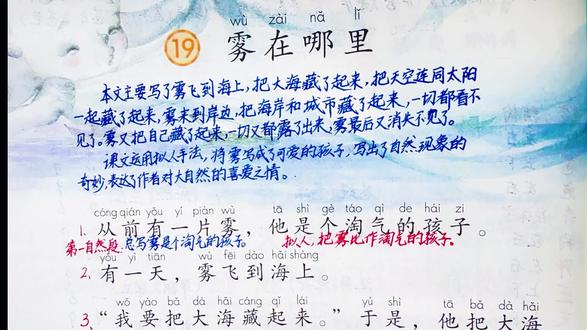 wù zài nǎ lǐ
19 雾在哪里
本文主要写了雾飞到海上,把大海藏了起来,把天空连同太阳
一起藏了起来,雾来到岸边,把海岸和城市藏了起来,一切都看不
见了。雾又把自己藏了起来,一切又都露了出来,雾最后又消失不见了。
课文运用拟人手法,将雾写成了可爱的孩子,写出了自然现象的
奇妙,表达了作者对大自然的喜爱之情。
cóng qián yǒu yí piàn wù tā shì gè táo qì de hái zi
1. 从前有一片雾,他是个淘气的孩子。
第一自然段:总写雾是个淘气的孩子。 拟人,把雾比作淘气的孩子。
yǒu yì tiān wù fēi dào hǎi shàng
2. 有一天,雾飞到海上。
wǒ yào bǎ dà hǎi cáng qǐ lái yú shì tā bǎ dà hǎi
3. “我要把大海藏起来。”于是,他把大海